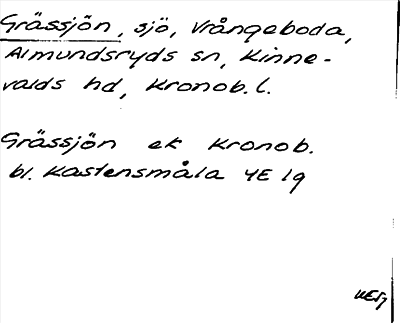 Grässjön, sjö, Vrångeboda,
Almundsryds sn, Kinne-
valds hd, Kronob. l.
Grässjön ek Kronob.
bl. Kastensmåla 4E 1g